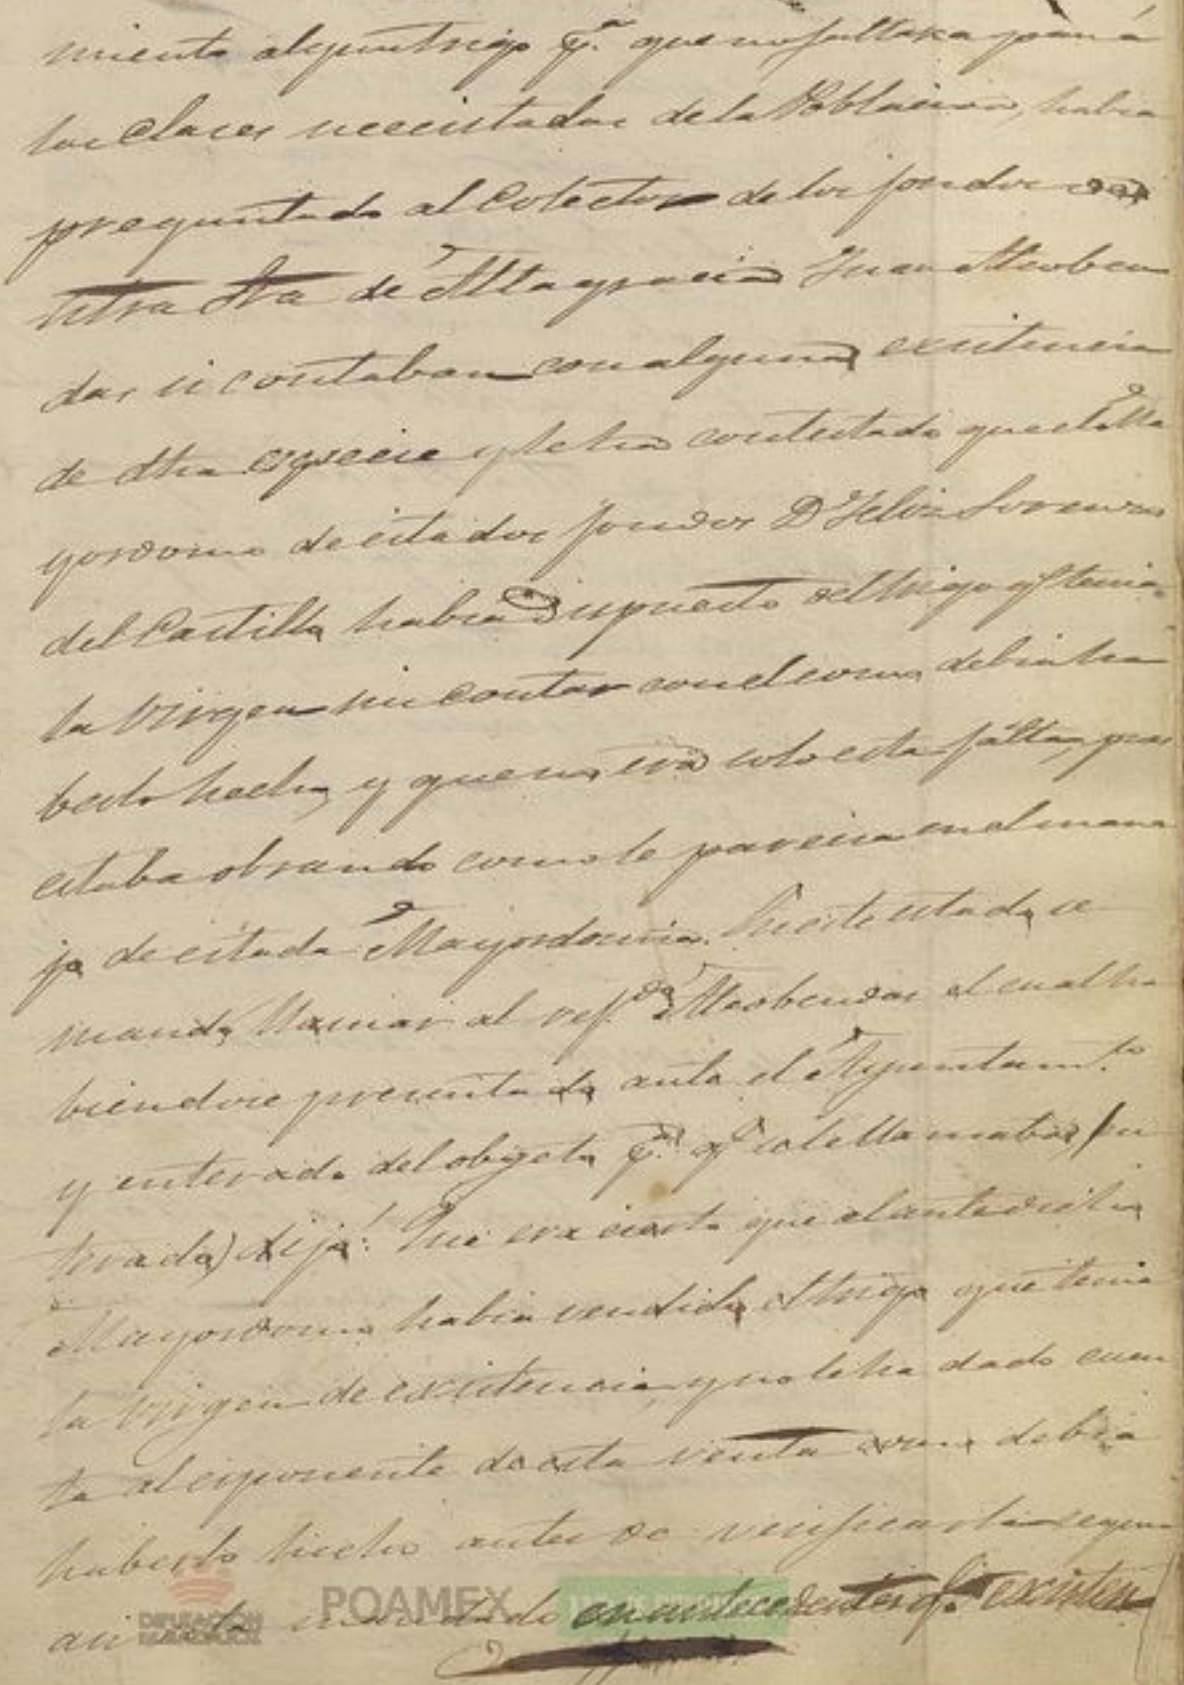 miento algun trigo p.ª que no faltara pan á
las clases necesitadas de la Poblacion, habia
preguntado al Colector de los fondos de
ntra Sra de Altagracia Juan Alcoben
das si contaban con alguna existencia
de dha especie y le ha contestado que el Ma
yordomo de citados fondos D. Felix Lorenzo
del Castillo habia dispuesto del trigo q.e tenia
la Virgen sin contar con el como debia ha
berlo hecho, y que no era solo esta falta, pues
estaba obrando como le parecia en el mane
jo de citada Mayordomia. En este estado se
mandó llamar al ref.do Alcobendas el cual ha
biendose presentado ante el Ayuntam.to
y enterado del objeto p.ª q.e se le llamaba, (en
terado) dijo: Que era cierto que el antedicho
Mayordomo habia vendido el trigo que tenia
la Virgen de existencia, y no le ha dado cuen
ta al esponente de esta venta como debia
haberlo hecho antes de verificarla segun
asi está mandado en antecedentes q.e existen
DIPUTACIÓN
POAMEX